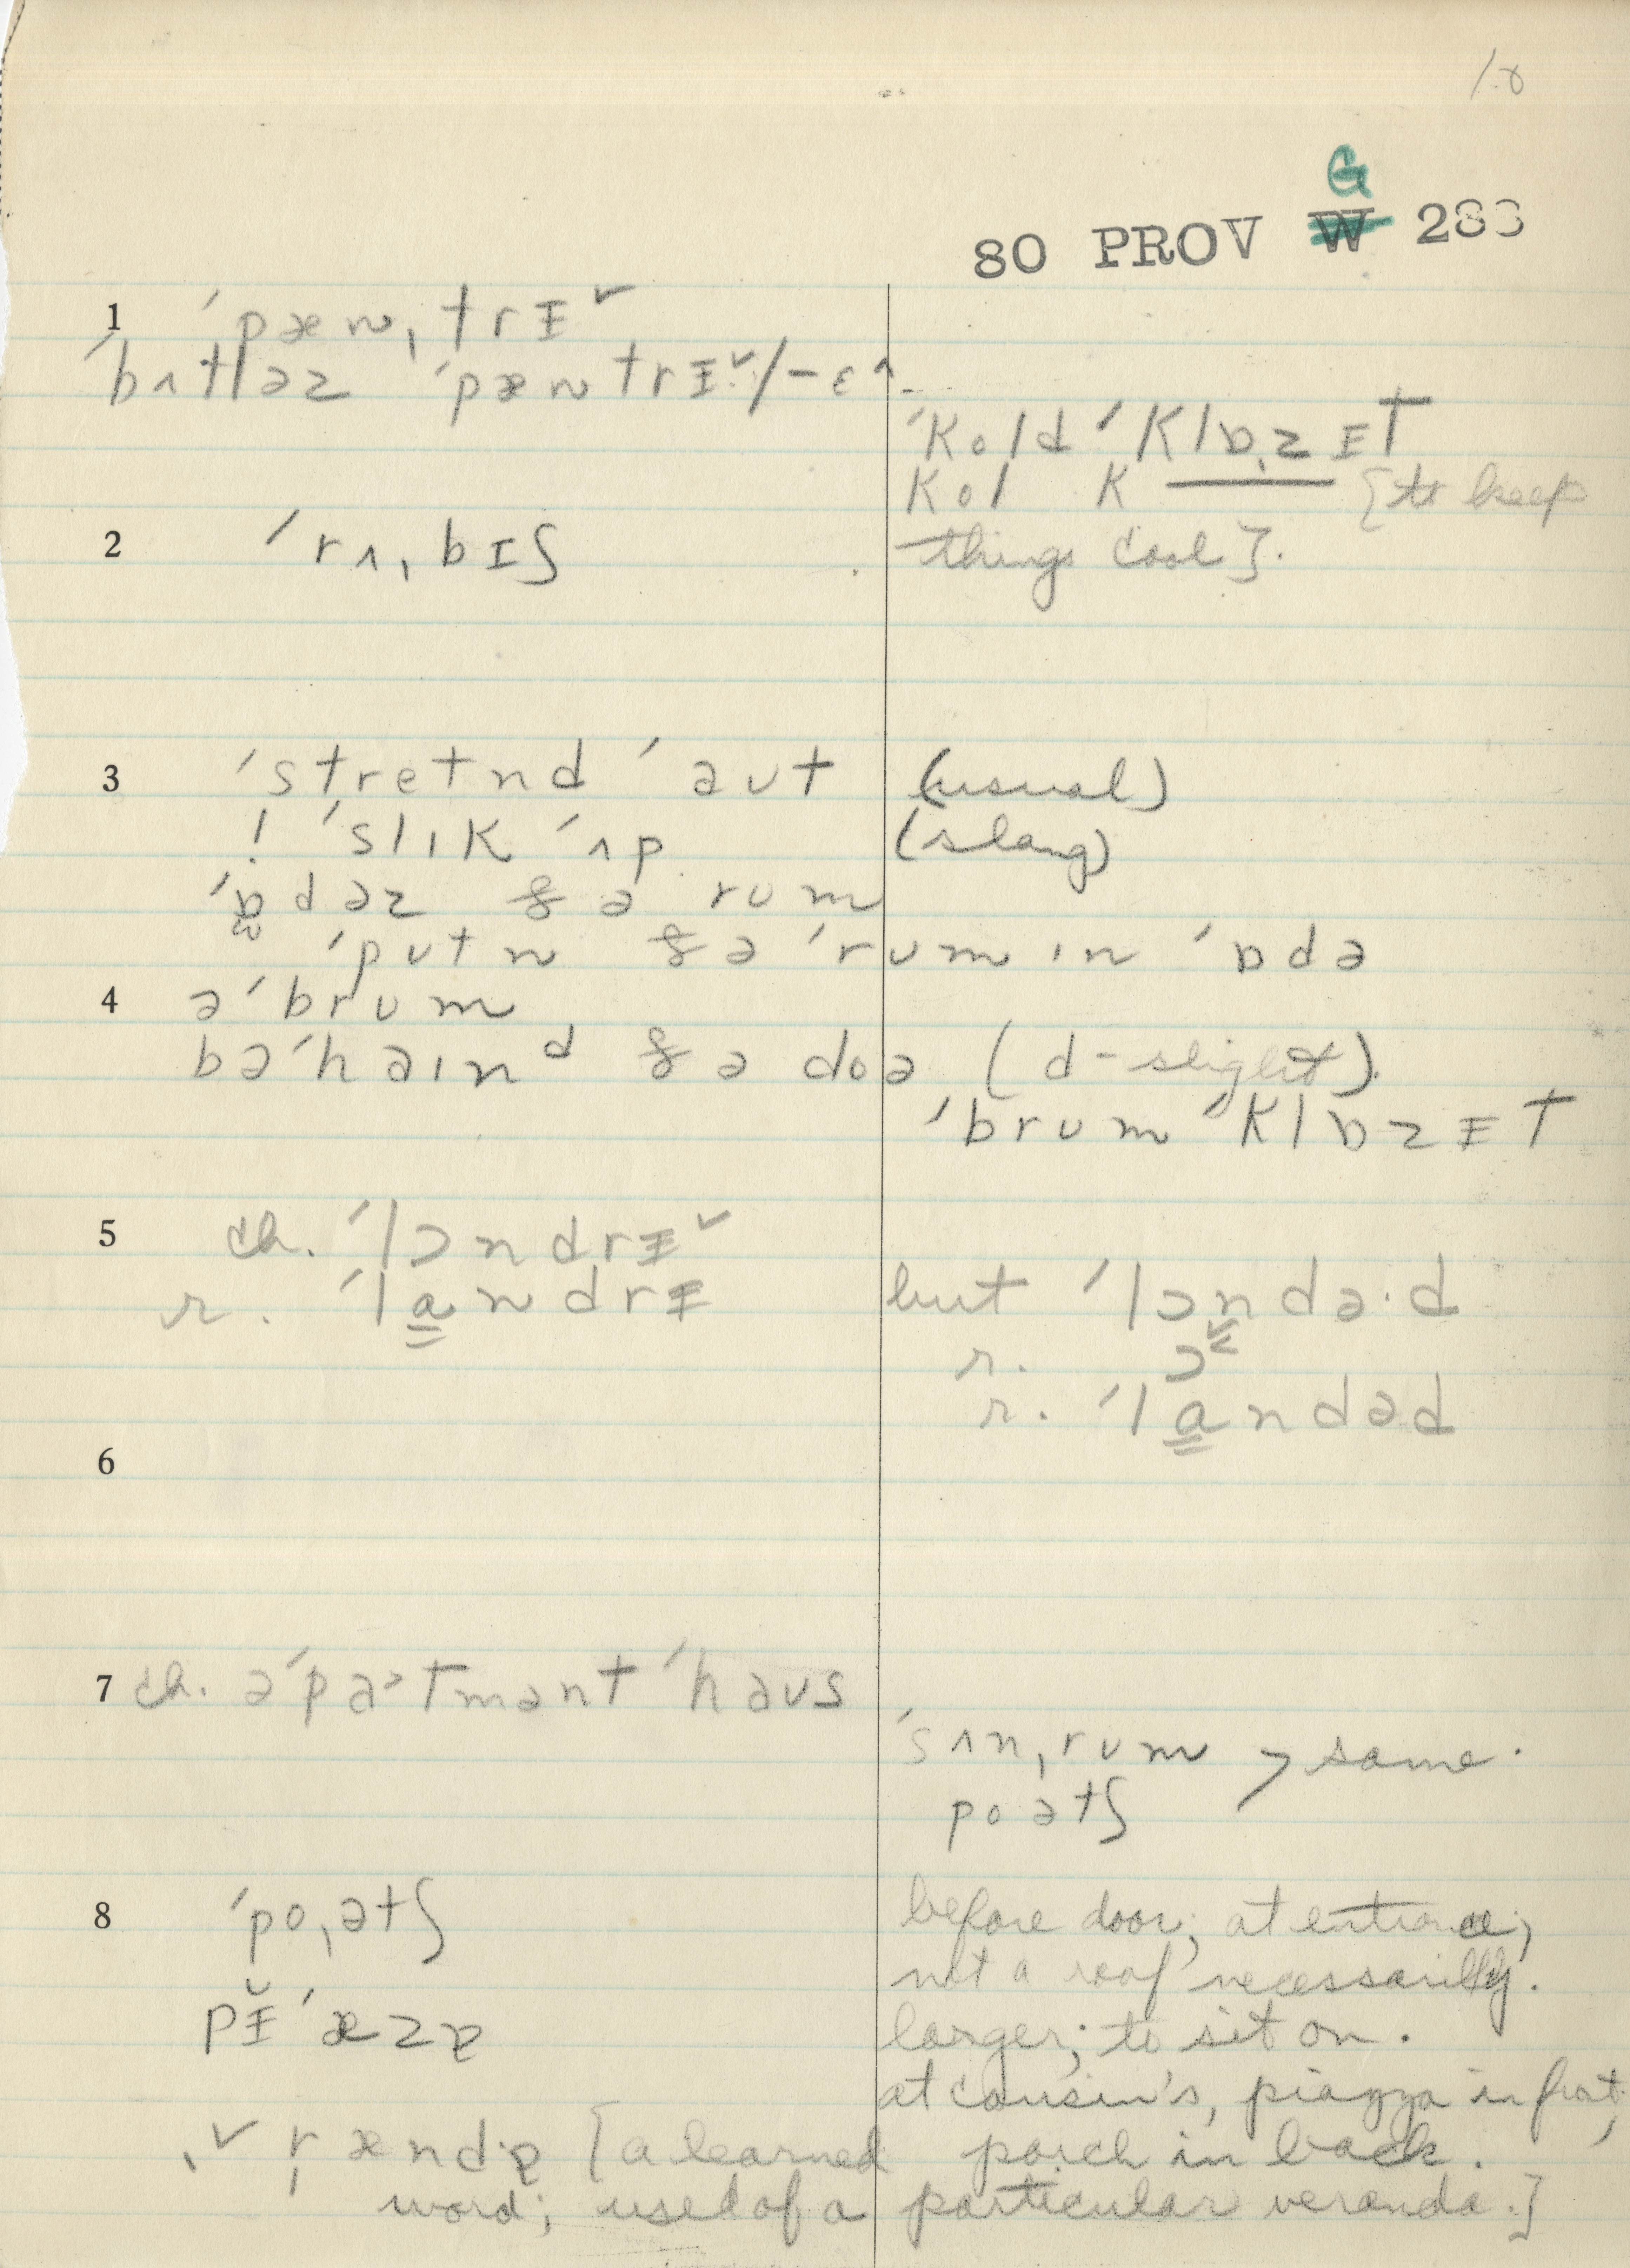 18
G
80 PROV W 283
1 ˈpæn,trɪ˅
ˈbʌtləz ˈpæntrɪ˅/-ɛ^
ˈkold ˈklɒ,zɪt
kol k—— [to keep
2 ˈrʌ,bɪʃ things cool].
3 ˈstretnd ˈaut (usual)
! ˈslɪk ˈʌp (slang)
ˈɒdəz ðə rum
ˈputn ðə ˈrum ɪn ˈɒdə
4 ə ˈbrum
bəˈhaɪnᵈ ðə doə (d-slight).
ˈbrum ˈklɒzɪt
5 ch. ˈlɔndrɪ˅
r. ˈlandrɪ but ˈlɔndə·d
r. ɔ˅
r. ˈlandəd
6
7 ch. əˈpa>tmənt ˈhaus
ˈsʌn,rum > same.
poətʃ
8 ˈpo,ətʃ before door; at entrance;
not a roof necessarily.
pɪ̆ˈæzə larger; to sit on.
at cousin's, piazza in front,
,v r̩ændə [a learned porch in back.
word; used of a particular veranda.]